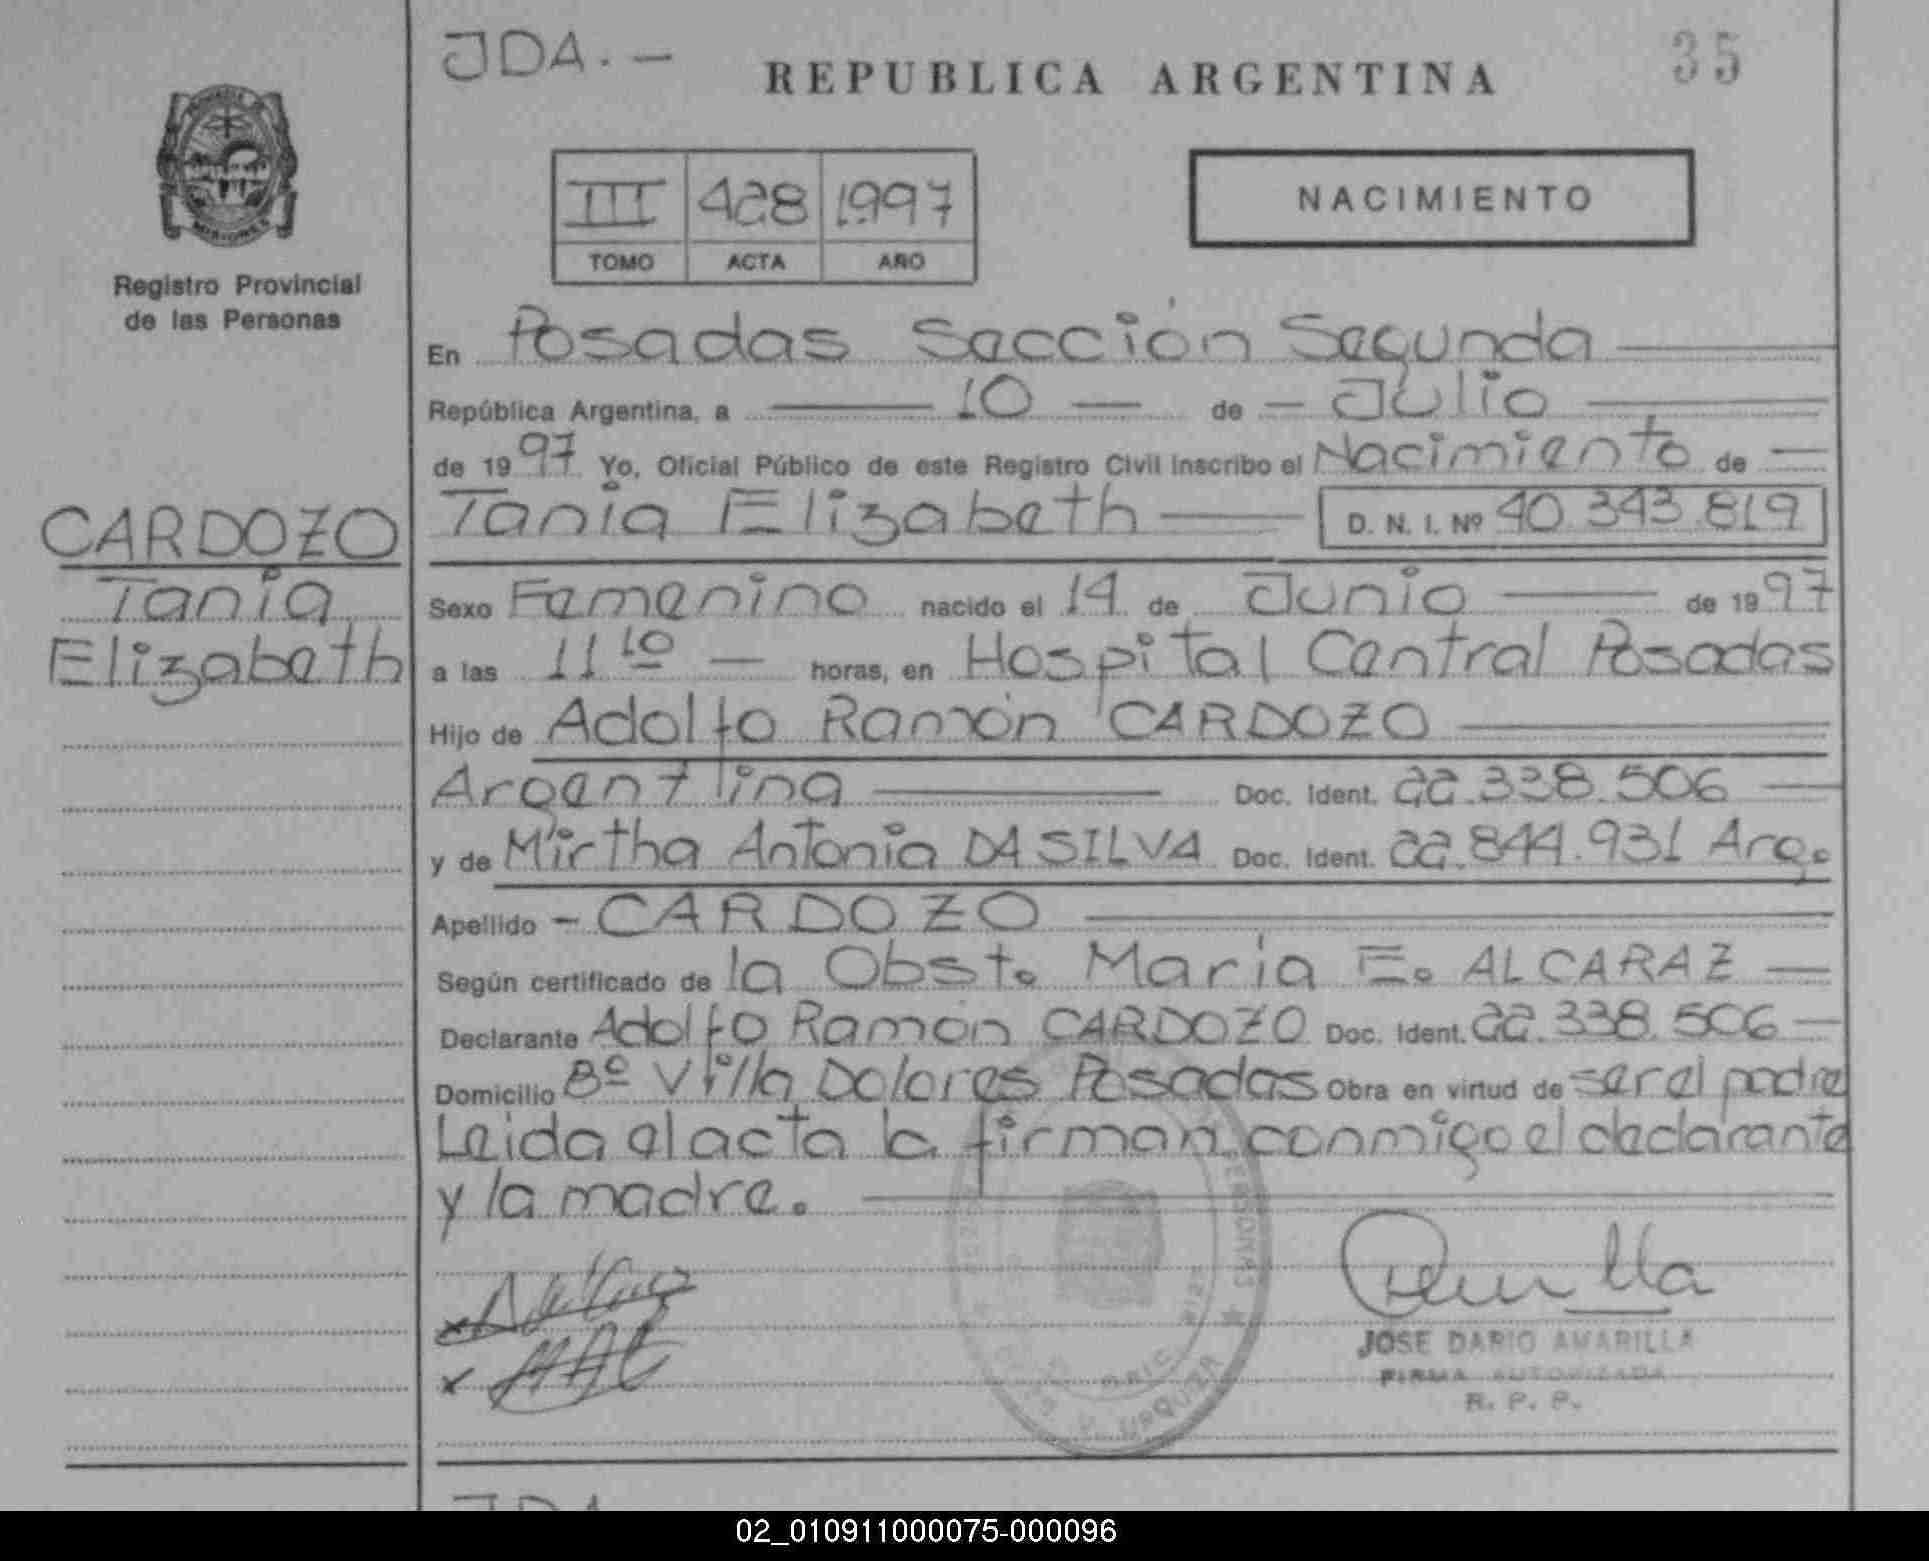 JDA. -
REPUBLICA ARGENTINA
35
MISIONES
Registro Provincial
de las Personas
III 428 1.997
TOMO ACTA AÑO
NACIMIENTO
En Posadas Sección Segunda
República Argentina, a 10 de Julio
de 1997 Yo, Oficial Público de este Registro Civil inscribo el Nacimiento de
CARDOZO
Tania
Elizabeth
Tania Elizabeth D. N. I. Nº 40.343.819
Sexo Femenino nacido el 14 de Junio de 1997
a las 11 10 horas, en Hospital Central Posadas
Hijo de Adolfo Ramón CARDOZO
Argentina Doc. Ident. 22.338.506
y de Mirtha Antonia DA SILVA Doc. Ident. 22.844.931 Arg.
Apellido - CARDOZO
Según certificado de la Obst. María E. ALCARAZ
Declarante Adolfo Ramón CARDOZO Doc. Ident. 22.338.506
Domicilio Bº Villa Dolores Posadas Obra en virtud de ser el padre
Leida el acta la firman conmigo el declarante
y la madre.
PERSONAS
URQUIZA
JOSE DARIO AMARILLA
FIRMA AUTORIZADA
R. P. P.
JDA
02_010911000075-000096